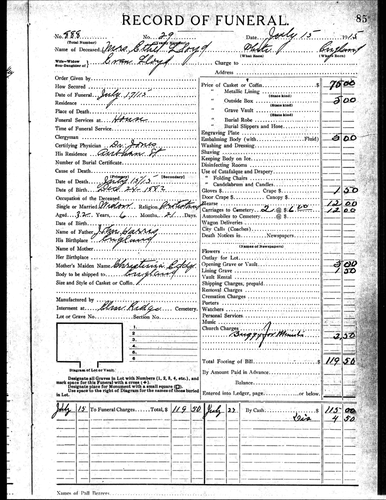 RECORD OF FUNERAL.
85
No. 888 No. 29 Date July 15 1915
(Total Number) (Yearly Number)
Name of Deceased Mrs. Ethel Lloyd White England
(What Race) (Where Born)
Widow
Evan Lloyd Charge to
Address
Order Given by
How Secured
Date of Funeral July 17/15
Residence
Place of Death
Funeral Services at House
Time of Funeral Service
Clergyman
Certifying Physician Dr. Jones
His Residence
Number of Burial Certificate
Cause of Death
(Secondary)
Date of Death July 15/15
Date of Birth Dec 24-1882
Occupation of the Deceased
Single or Married Widow Religion Protestant
Aged 32 Years 6 Months 21 Days
Name of Father John Harris
His Birthplace England
Name of Mother
Her Birthplace
Mother's Maiden Name
Body to be shipped to England
Size and Style of Casket or Coffin
Manufactured by
Interment at Glen Ridge Cemetery
Lot or Grave No. Section No.
Diagram of Lot or Vault.
Designate all Graves in Lot with Numbers (1, 2, 3, 4, etc.), and
mark space for this Funeral with a cross (+).
Designate place for Monument with a small square (□).
Use space to the right of Diagram for names of those buried
in Lot.
Price of Casket or Coffin $ 75 00
" Metallic Lining
" Outside Box 5 00
" Grave Vault
" Burial Robe
" Burial Slippers and Hose
Engraving Plate
Embalming Body (with Fluid) 5 00
Washing and Dressing
Shaving
Keeping Body on Ice
Disinfecting Rooms
Use of Catafalque and Drapery
" Folding Chairs
" Candelabrum and Candles
Gloves $ Crape $ 1 50
Door Crape Canopy $
Hearse 12 00
Carriages to Cemetery 2 @ $ 6 00 12 00
Automobiles to Cemetery @ $
Wagon Deliveries
City Calls (Coaches)
Death Notices in Newspapers
(Names of Newspapers)
Flowers
Outlay for Lot
Opening Grave or Vault 3 00
Lining Grave 1 50
Vault Rental
Shipping Charges, prepaid
Removal Charges
Cremation Charges
Porters
Watchers
Personal Services
Music
Church Charges
Buggy for Minister 3 50
Total Footing of Bill $ 119 50
By Amount Paid in Advance
Balance
Entered into Ledger, page or below.
July 15 To Funeral Charges, Total, $ 119 50 July 22 By Cash $ 115 00
Dis 4 50
Names of Pall Bearers